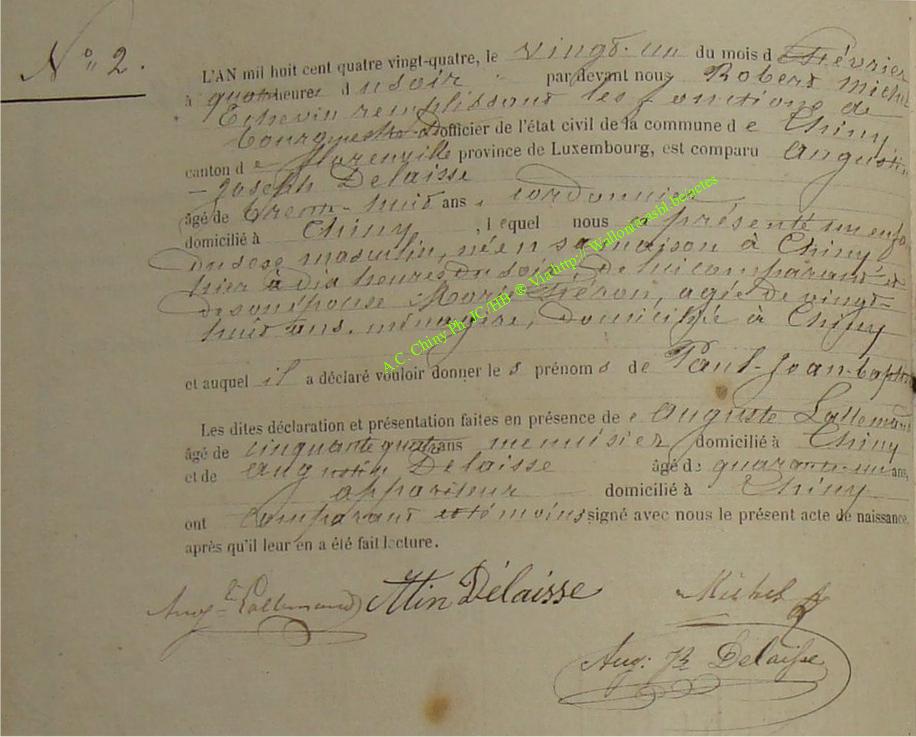 N° 2.
L'AN mil huit cent quatre vingt-quatre, le vingt-un du mois de Février
à quatre heures du soir par devant nous Robert Michel
Echevin remplissant les fonctions de
bourgmestre officier de l'état civil de la commune de Chiny
canton de Florenville province de Luxembourg, est comparu Augustin
- Joseph Delaisse
âgé de trente-huit ans, cordonnier
domicilié à Chiny, lequel nous a présenté un enfant
du sexe masculin, né en sa maison à Chiny
hier à dix heures du soir, de lui comparant et
de son épouse Marie, agée de vingt-
huit ans, ménagère, domiciliée à Chiny
et auquel il a déclaré vouloir donner les prénoms de Paul-Jean-bapt
Les dites déclaration et présentation faites en présence de Auguste Lallemand
âgé de cinquante quatre ans menuisier domicilié à Chiny
et de Augustin Delaisse âgé de quarante-un ans,
appariteur domicilié à Chiny
ont comparant et témoins signé avec nous le présent acte de naissance,
après qu'il leur en a été fait lecture.
Aug.te Lallemand Atin Délaisse Michel R
Aug: Delaisse
A.C. Chiny Ph JC/HB ® Via http://Wallonia.asbl.be actes